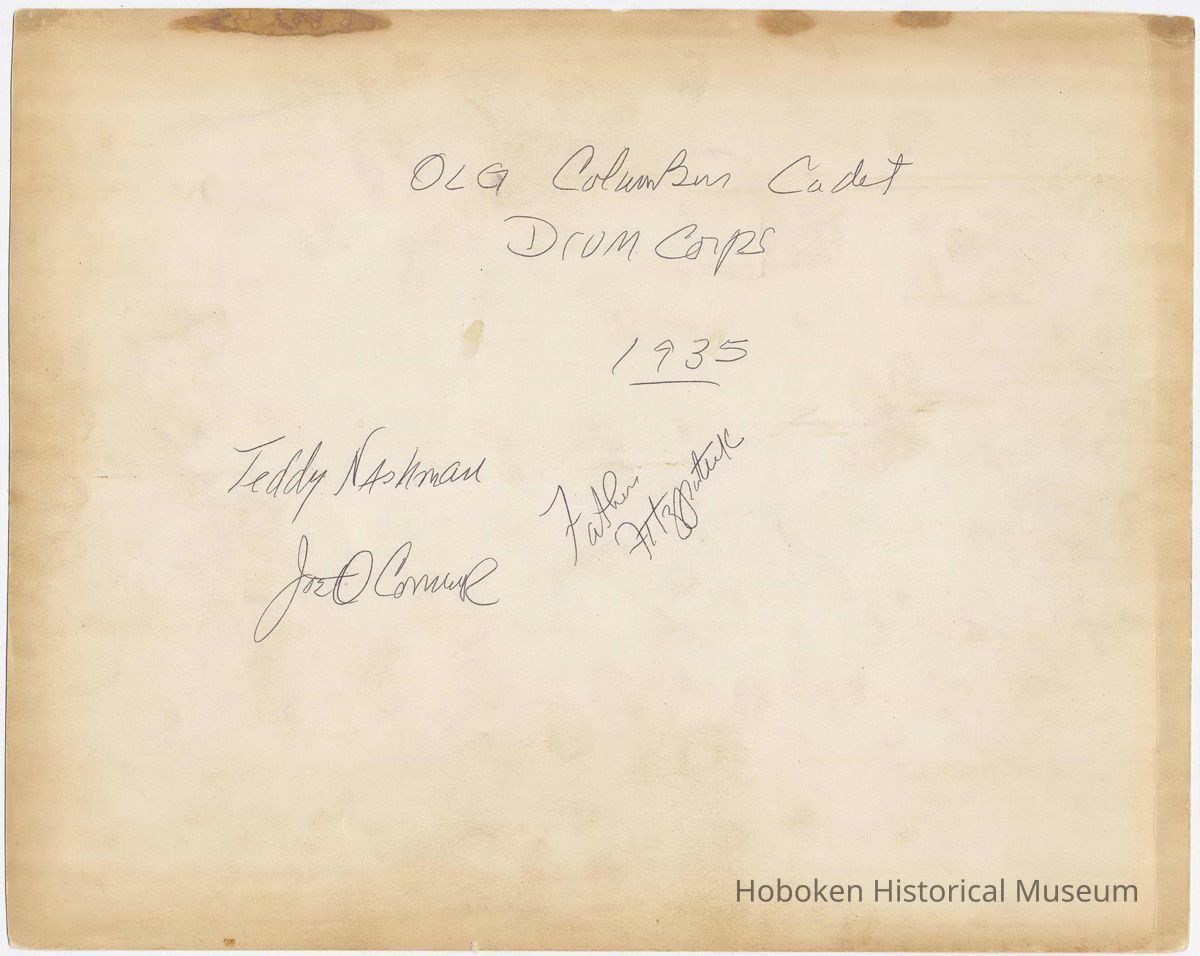 OLG Columbus Cadet
Drum Corps
1935
Teddy Nashman
Father
Fitzpatrick
Joe O Connor
Hoboken Historical Museum